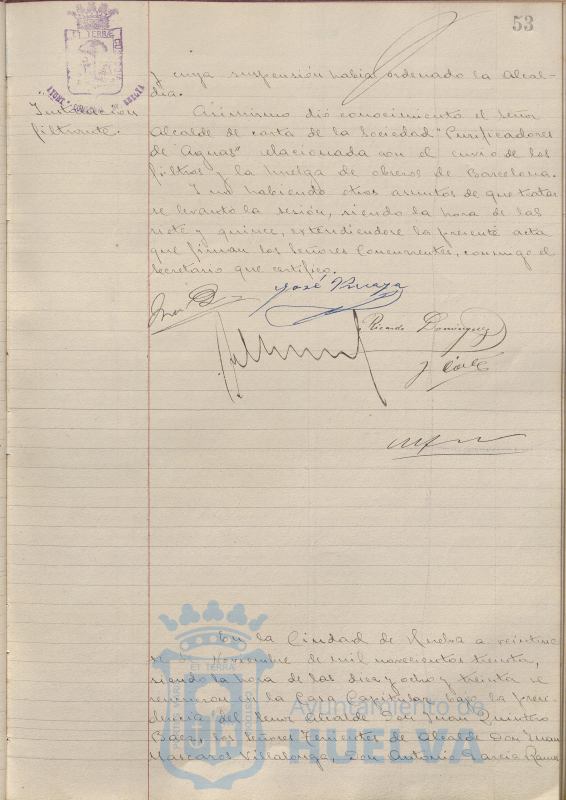 53
y cuya suspensión había ordenado la Alcal-
día.
Instalación
filtrante.
Asimismo dió conocimiento el Señor
Alcalde de carta de la Sociedad "Purificadores
de Aguas" relacionada con el envio de los
filtros y la huelga de obreros de Barcelona.
Y no habiendo otros asuntos de que tratar
se levantó la sesión, siendo la hora de las
siete y quince, extendiendose la presente acta
que firman los Señores Concurrentes, conmigo el
Secretario que certifico.
José
Ricardo Dominguez
En la Ciudad de Huelva a
de Noviembre de mil novecientos treinta,
siendo la hora de las diez y ocho y treinta se
reunieron en la Casa Capitular bajo la presi-
dencia del Señor Alcalde Don Juan Quintero
Baez, los Señores Tenientes de Alcalde Don Juan
Mascarós Villalonga, Don Antonio Garcia Ramos
Ayuntamiento de
HUELVA